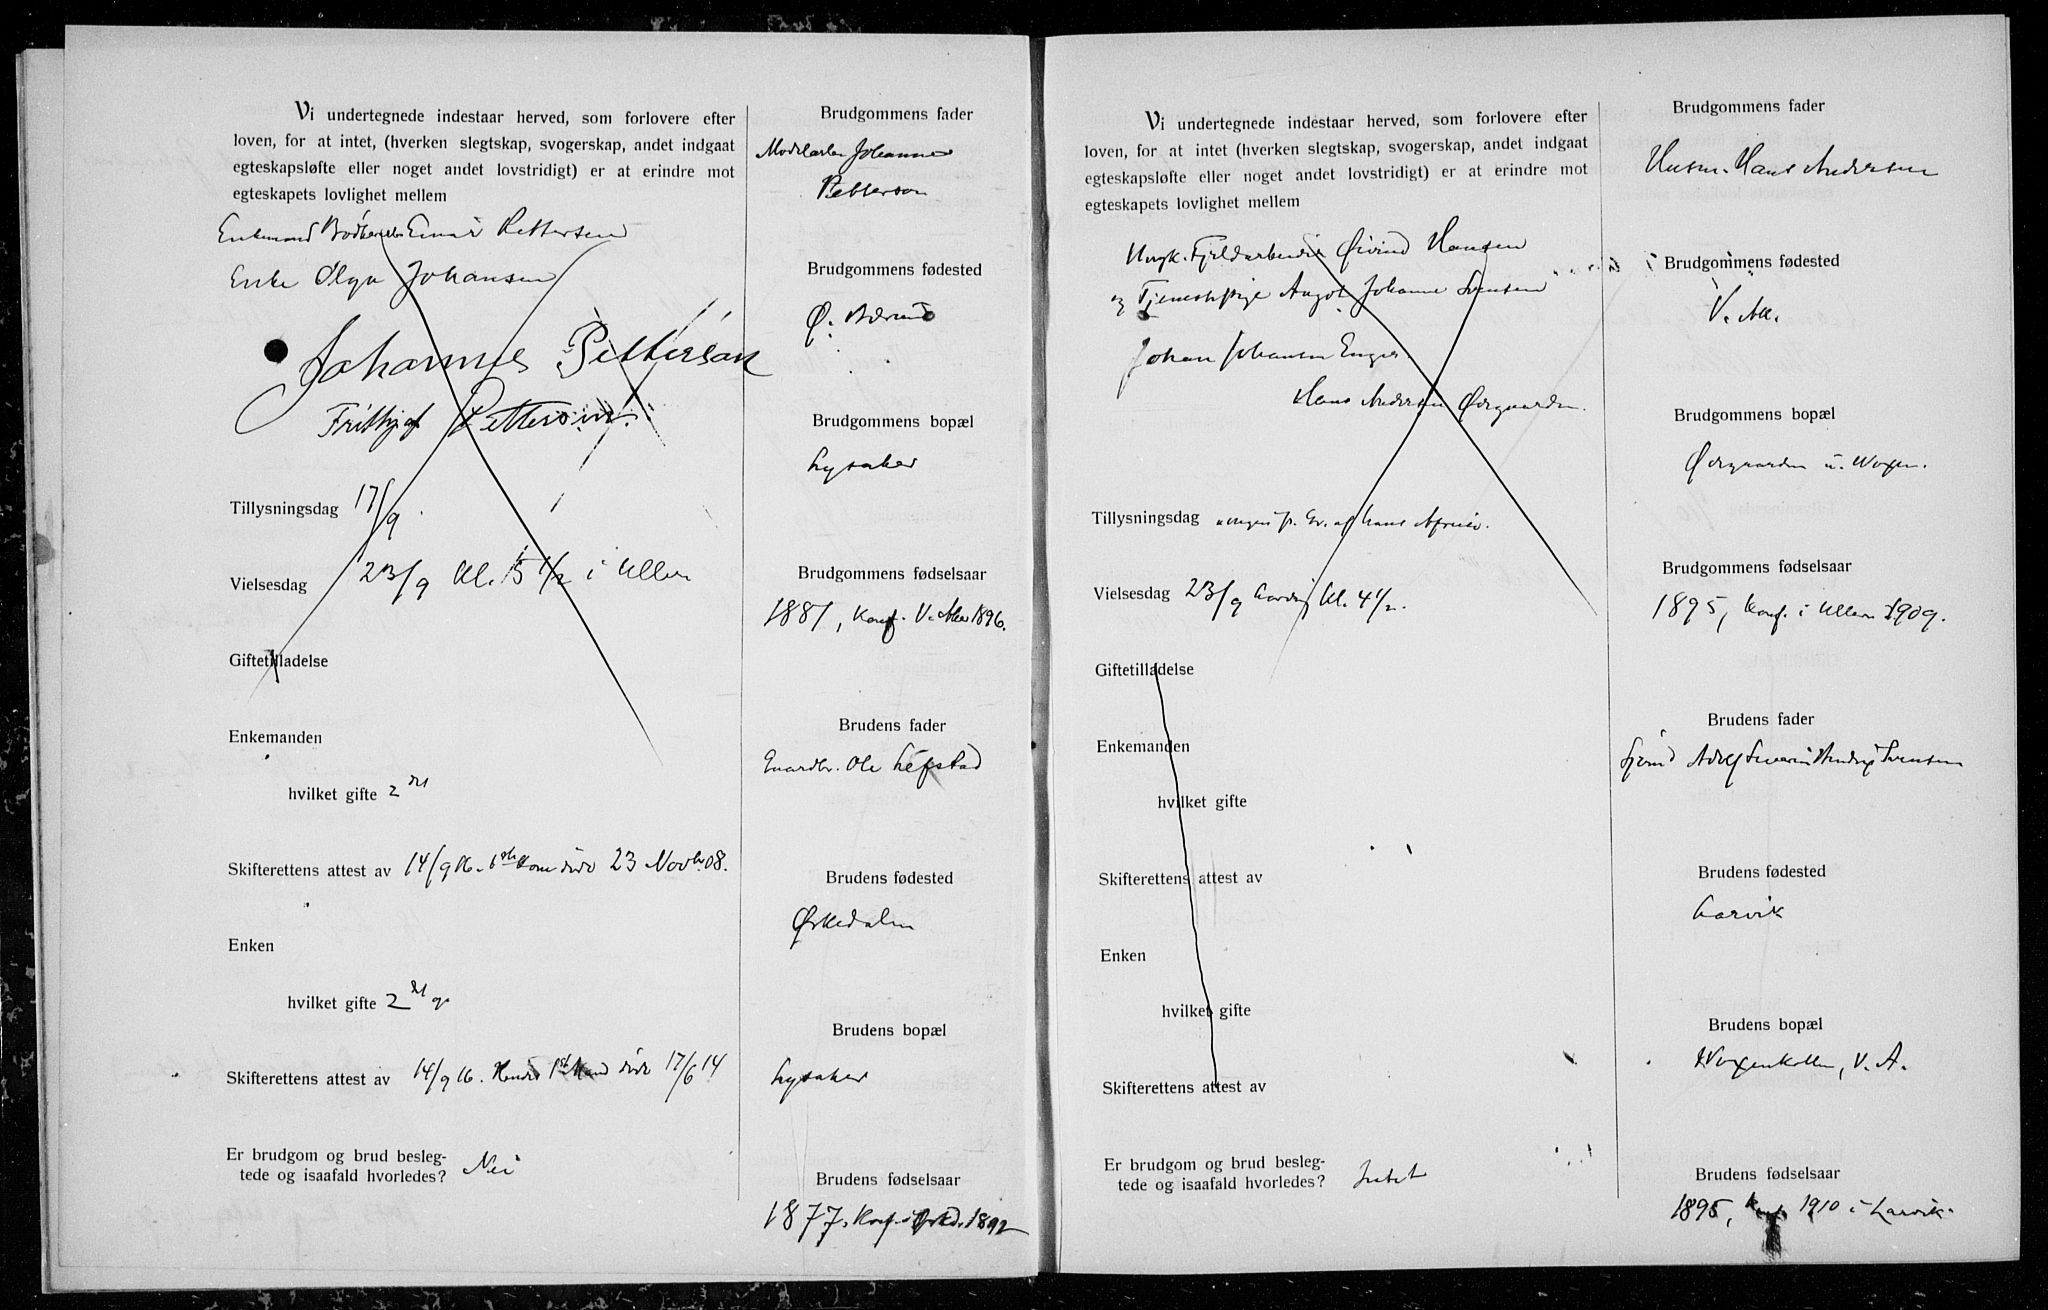 Vi undertegnede indestaar herved, som forlovere efter
loven, for at intet, (hverken slegtskap, svogerskap, andet indgaat
egteskapsløfte eller noget andet lovstridigt) er at erindre mot
egteskapets lovlighet mellem
Enkemand Einar Pettersen
Enke Olga Johansen
Johannes Petterson
Frithjof Petterson
Tillysningsdag 17/9.
Vielsesdag 23/9 kl. 5 1/2 i Ullern
Giftetilladelse
Enkemanden
hvilket gifte 2det
Skifterettens attest av 14/9 16. 1ste Kone døde 23 Novbr. 08.
Enken
hvilket gifte 2det g.
Skifterettens attest av 14/9 16. Hendes 1st Mand døde 17/6 14
Er brudgom og brud besleg-
tede og isaafald hvorledes? Nei
Brudgommens fader
Johannes
Petterson
Brudgommens fødested
Ø. Bærum
Brudgommens bopæl
Lysaker
Brudgommens fødselsaar
1881, Konf. V. Aker 1896.
Brudens fader
Gaardbr. Ole Lefstad
Brudens fødested
Ørkedalen
Brudens bopæl
Lysaker
Brudens fødselsaar
1877, Konf. i Ørkd. 1892
Vi undertegnede indestaar herved, som forlovere efter
loven, for at intet (hverken slegtskap, svogerskap, andet indgaat
egteskapsløfte eller noget andet lovstridigt) er at erindre mot
egteskapets lovlighet mellem
Ungk. Fjeldarbeider Øivind Hansen
og Tjenestepige Aagot Johanne Svensen
Johan Johansen Enger.
Hans Andersen Øvrgaarden.
Tillysningsdag
Vielsesdag 23/9 Lørdag kl. 4 1/2.
Giftetilladelse
Enkemanden
hvilket gifte
Skifterettens attest av
Enken
hvilket gifte
Skifterettens attest av
Er brudgom og brud besleg-
tede og isaafald hvorledes? Intet
Brudgommens fader
Husm. Hans Andersen
Brudgommens fødested
V. Ak.
Brudgommens bopæl
Øvrgaarden u. Voxen.
Brudgommens fødselsaar
1895, Konf. i Ullern 1909.
Brudens fader
Adolf Severin Svensen
Brudens fødested
Larvik
Brudens bopæl
Voxenkollen, V. A.
Brudens fødselsaar
1895, Konf. 1910 i Larvik.